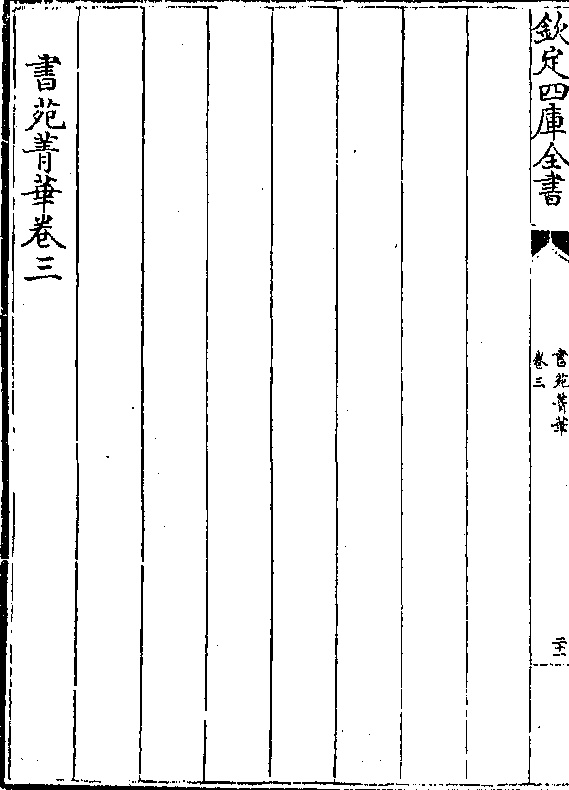 欽定四庫全書
書苑菁華
卷三
書苑菁華卷三